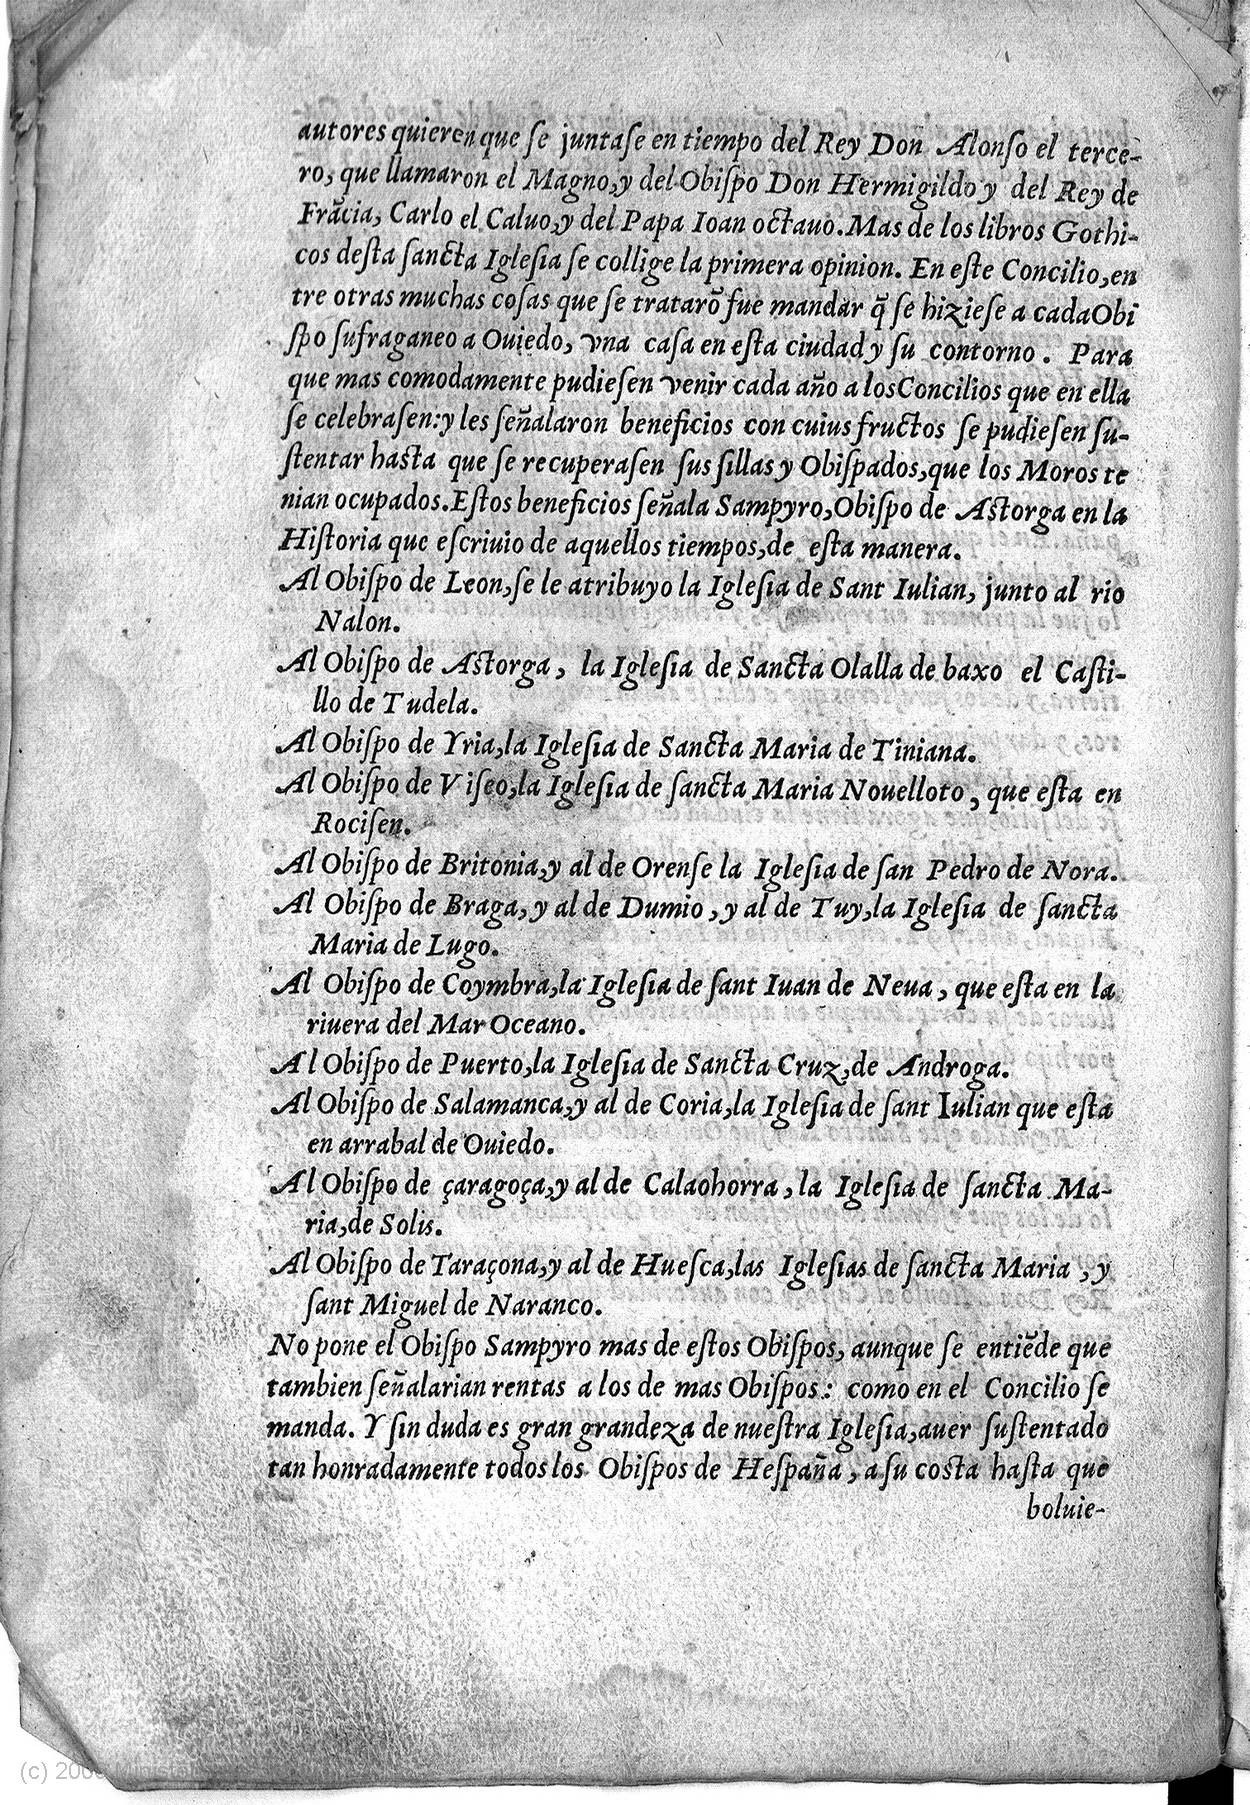 autores quieren que ſe juntaſe en tiempo del Rey Don Alonſo el terce-
ro, que llamaron el Magno, y del Obiſpo Don Hermigildo y del Rey de
Frãcia, Carlo el Caluo, y del Papa Ioan octauo. Mas de los libros Gothi-
cos deſta ſancta Igleſia ſe collige la primera opinion. En eſte Concilio, en
tre otras muchas coſas que ſe tratarõ fue mandar q̃ ſe hizieſe a cada Obi
ſpo ſufraganeo a Ouiedo, vna caſa en eſta ciudad y ſu contorno. Para
que mas comodamente pudieſen venir cada año a los Concilios que en ella
ſe celebraſen: y les ſeñalaron beneficios con cuius fructos ſe pudieſen ſu-
ſtentar haſta que ſe recuperaſen ſus ſillas y Obiſpados, que los Moros te
nian ocupados. Eſtos beneficios ſeñala Sampyro, Obiſpo de Aſtorga en la
Hiſtoria que eſcriuio de aquellos tiempos, de eſta manera.
Al Obiſpo de Leon, ſe le atribuyo la Igleſia de Sant Iulian, junto al rio
Nalon.
Al Obiſpo de Aſtorga, la Igleſia de Sancta Olalla de baxo el Caſti-
llo de Tudela.
Al Obiſpo de Yria, la Igleſia de Sancta Maria de Tiniana.
Al Obiſpo de Viſeo, la Igleſia de ſancta Maria Nouelloto, que eſta en
Rociſen.
Al Obiſpo de Britonia, y al de Orenſe la Igleſia de ſan Pedro de Nora.
Al Obiſpo de Braga, y al de Dumio, y al de Tuy, la Igleſia de ſancta
Maria de Lugo.
Al Obiſpo de Coymbra, la Igleſia de ſant Iuan de Neua, que eſta en la
riuera del Mar Oceano.
Al Obiſpo de Puerto, la Igleſia de Sancta Cruz, de Androga.
Al Obiſpo de Salamanca, y al de Coria, la Igleſia de ſant Iulian que eſta
en arrabal de Ouiedo.
Al Obiſpo de çaragoça, y al de Calaohorra, la Igleſia de ſancta Ma-
ria, de Solis.
Al Obiſpo de Taraçona, y al de Hueſca, las Igleſias de ſancta Maria, y
ſant Miguel de Naranco.
No pone el Obiſpo Sampyro mas de eſtos Obiſpos, aunque ſe entiẽde que
tambien ſeñalarian rentas a los de mas Obiſpos: como en el Concilio ſe
manda. Y ſin duda es gran grandeza de nueſtra Igleſia, auer ſuſtentado
tan honradamente todos los Obiſpos de Heſpaña, a ſu coſta haſta que
boluie-
(c)